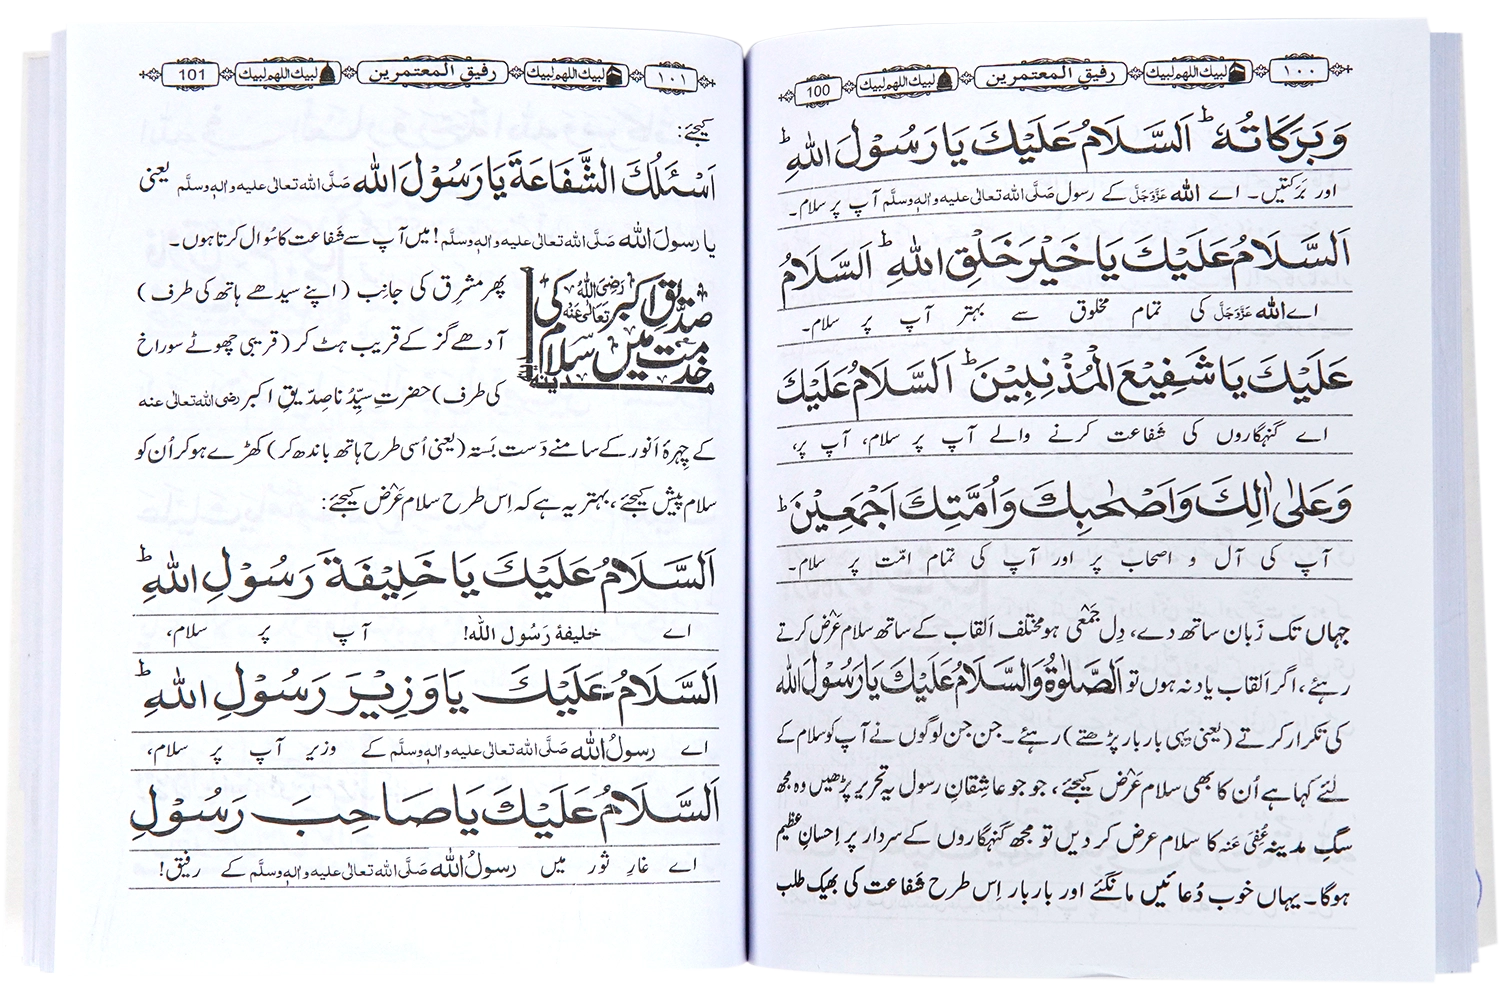 ۱۰۰ لبیك اللهم لبیك رفیق المعتمرین لبیك اللهم لبیك 100
وَبَرَكَاتُهٗ ؕ اَلسَّلَامُ عَلَيْكَ يَا رَسُوْلَ اللهِ ؕ
اور بَرَکتیں۔ اے اللہ عَزَّوَجَلَّ کے رسول صَلَّی اللہ تعالٰی علیہ والہٖ وسلَّم آپ پر سلام۔
اَلسَّلَامُ عَلَيْكَ يَا خَيْرَ خَلْقِ اللهِ ؕ اَلسَّلَامُ
اے اللہ عَزَّوَجَلَّ کی تمام مخلوق سے بہتر آپ پر سلام۔
عَلَيْكَ يَا شَفِيْعَ الْمُذْنِبِيْنَ ؕ اَلسَّلَامُ عَلَيْكَ
اے گنہگاروں کی شَفاعت کرنے والے آپ پر سلام، آپ پر،
وَعَلٰى اٰلِكَ وَاَصْحٰبِكَ وَاُمَّتِكَ اَجْمَعِيْنَ ؕ
آپ کی آل و اصحاب پر اور آپ کی تمام امّت پر سلام۔
جہاں تک زَبان ساتھ دے، دِل جَمْعی ہو مختلف اَلقاب کے ساتھ سلام عَرْض کرتے
رہئے، اگر اَلقاب یاد نہ ہوں تو اَلصَّلٰوةُ وَالسَّلَامُ عَلَيْكَ يَا رَسُوْلَ الله
کی تکرار کرتے (یعنی یہی بار بار پڑھتے) رہئے۔ جن جن لوگوں نے آپ کو سلام کے
لئے کہا ہے اُن کا بھی سلام عَرْض کیجئے، جو جو عاشِقانِ رسول یہ تحریر پڑھیں وہ مجھ
سگِ مدینہ عُفِیَ عَنہ کا سلام عرض کر دیں تو مجھ گنہگاروں کے سردار پر اِحسانِ عظیم
ہوگا۔ یہاں خوب دُعائیں مانگئے اور بار بار اِس طرح شَفاعت کی بھیک طلب
۱۰۱ لبیك اللهم لبیك رفیق المعتمرین لبیك اللهم لبیك 101
کیجئے:
اَسْئَلُكَ الشَّفَاعَةَ يَا رَسُوْلَ الله صَلَّی اللہ تعالٰی علیہ والہٖ وسلَّم یعنی
یا رسول اللہ صَلَّی اللہ تعالٰی علیہ والہٖ وسلَّم! میں آپ سے شَفاعت کا سُوال کرتا ہوں۔
صدّیقِ اکبر رَضِیَ اللہُ تَعَالٰی عَنْہُ کی خدمت میں سلام
پھر مشرِق کی جانِب (اپنے سیدھے ہاتھ کی طرف)
آدھے گز کے قریب ہٹ کر (قریبی چھوٹے سوراخ
کی طرف) حضرتِ سیِّدُنا صِدّیقِ اکبر رضی اللہ تعالٰی عنہ
کے چِہرۂ اَنور کے سامنے دَست بَستہ (یعنی اُسی طرح ہاتھ باندھ کر) کھڑے ہو کر اُن کو
سلام پیش کیجئے، بہتر یہ ہے کہ اِس طرح سلام عَرْض کیجئے:
اَلسَّلَامُ عَلَيْكَ يَا خَلِيْفَةَ رَسُوْلِ اللهِ ؕ
اے خلیفۂ رَسُول اللہ! آپ پر سلام،
اَلسَّلَامُ عَلَيْكَ يَا وَزِيْرَ رَسُوْلِ اللهِ ؕ
اے رسولُ اللہ صَلَّی اللہ تعالٰی علیہ والہٖ وسلَّم کے وزیر آپ پر سلام،
اَلسَّلَامُ عَلَيْكَ يَا صَاحِبَ رَسُوْلِ
اے غارِ ثور میں رسولُ اللہ صَلَّی اللہ تعالٰی علیہ والہٖ وسلَّم کے رفیق!